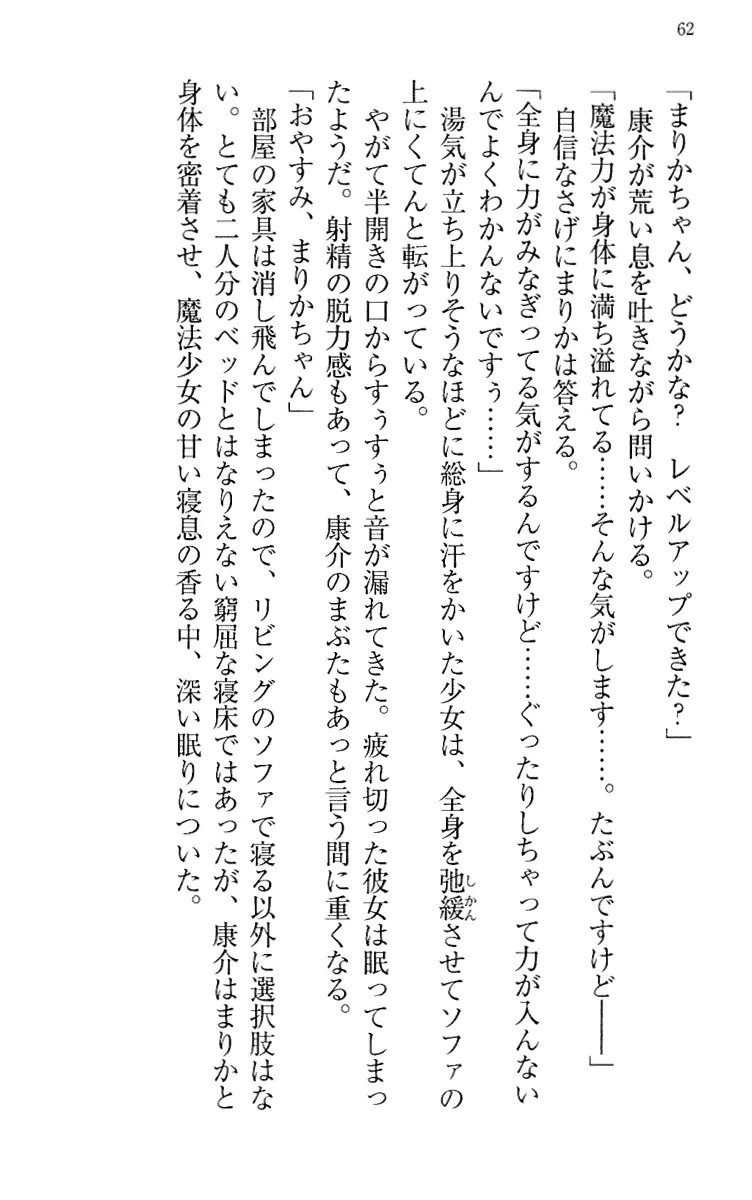 62
「まりかちゃん、どうかな？　レベルアップできた？」
康介が荒い息を吐きながら問いかける。
「魔法力が身体に満ち溢れてる……そんな気がします……。たぶんですけど――」
自信なさげにまりかは答える。
「全身に力がみなぎってる気がするんですけど……ぐったりしちゃって力が入んない
んでよくわかんないですぅ……」
湯気が立ち上りそうなほどに総身に汗をかいた少女は、全身を弛緩させてソファの
しかん
上にくてんと転がっている。
やがて半開きの口からすぅすぅと音が漏れてきた。疲れ切った彼女は眠ってしまっ
たようだ。射精の脱力感もあって、康介のまぶたもあっと言う間に重くなる。
「おやすみ、まりかちゃん」
部屋の家具は消し飛んでしまったので、リビングのソファで寝る以外に選択肢はな
い。とても二人分のベッドとはなりえない窮屈な寝床ではあったが、康介はまりかと
身体を密着させ、魔法少女の甘い寝息の香る中、深い眠りについた。